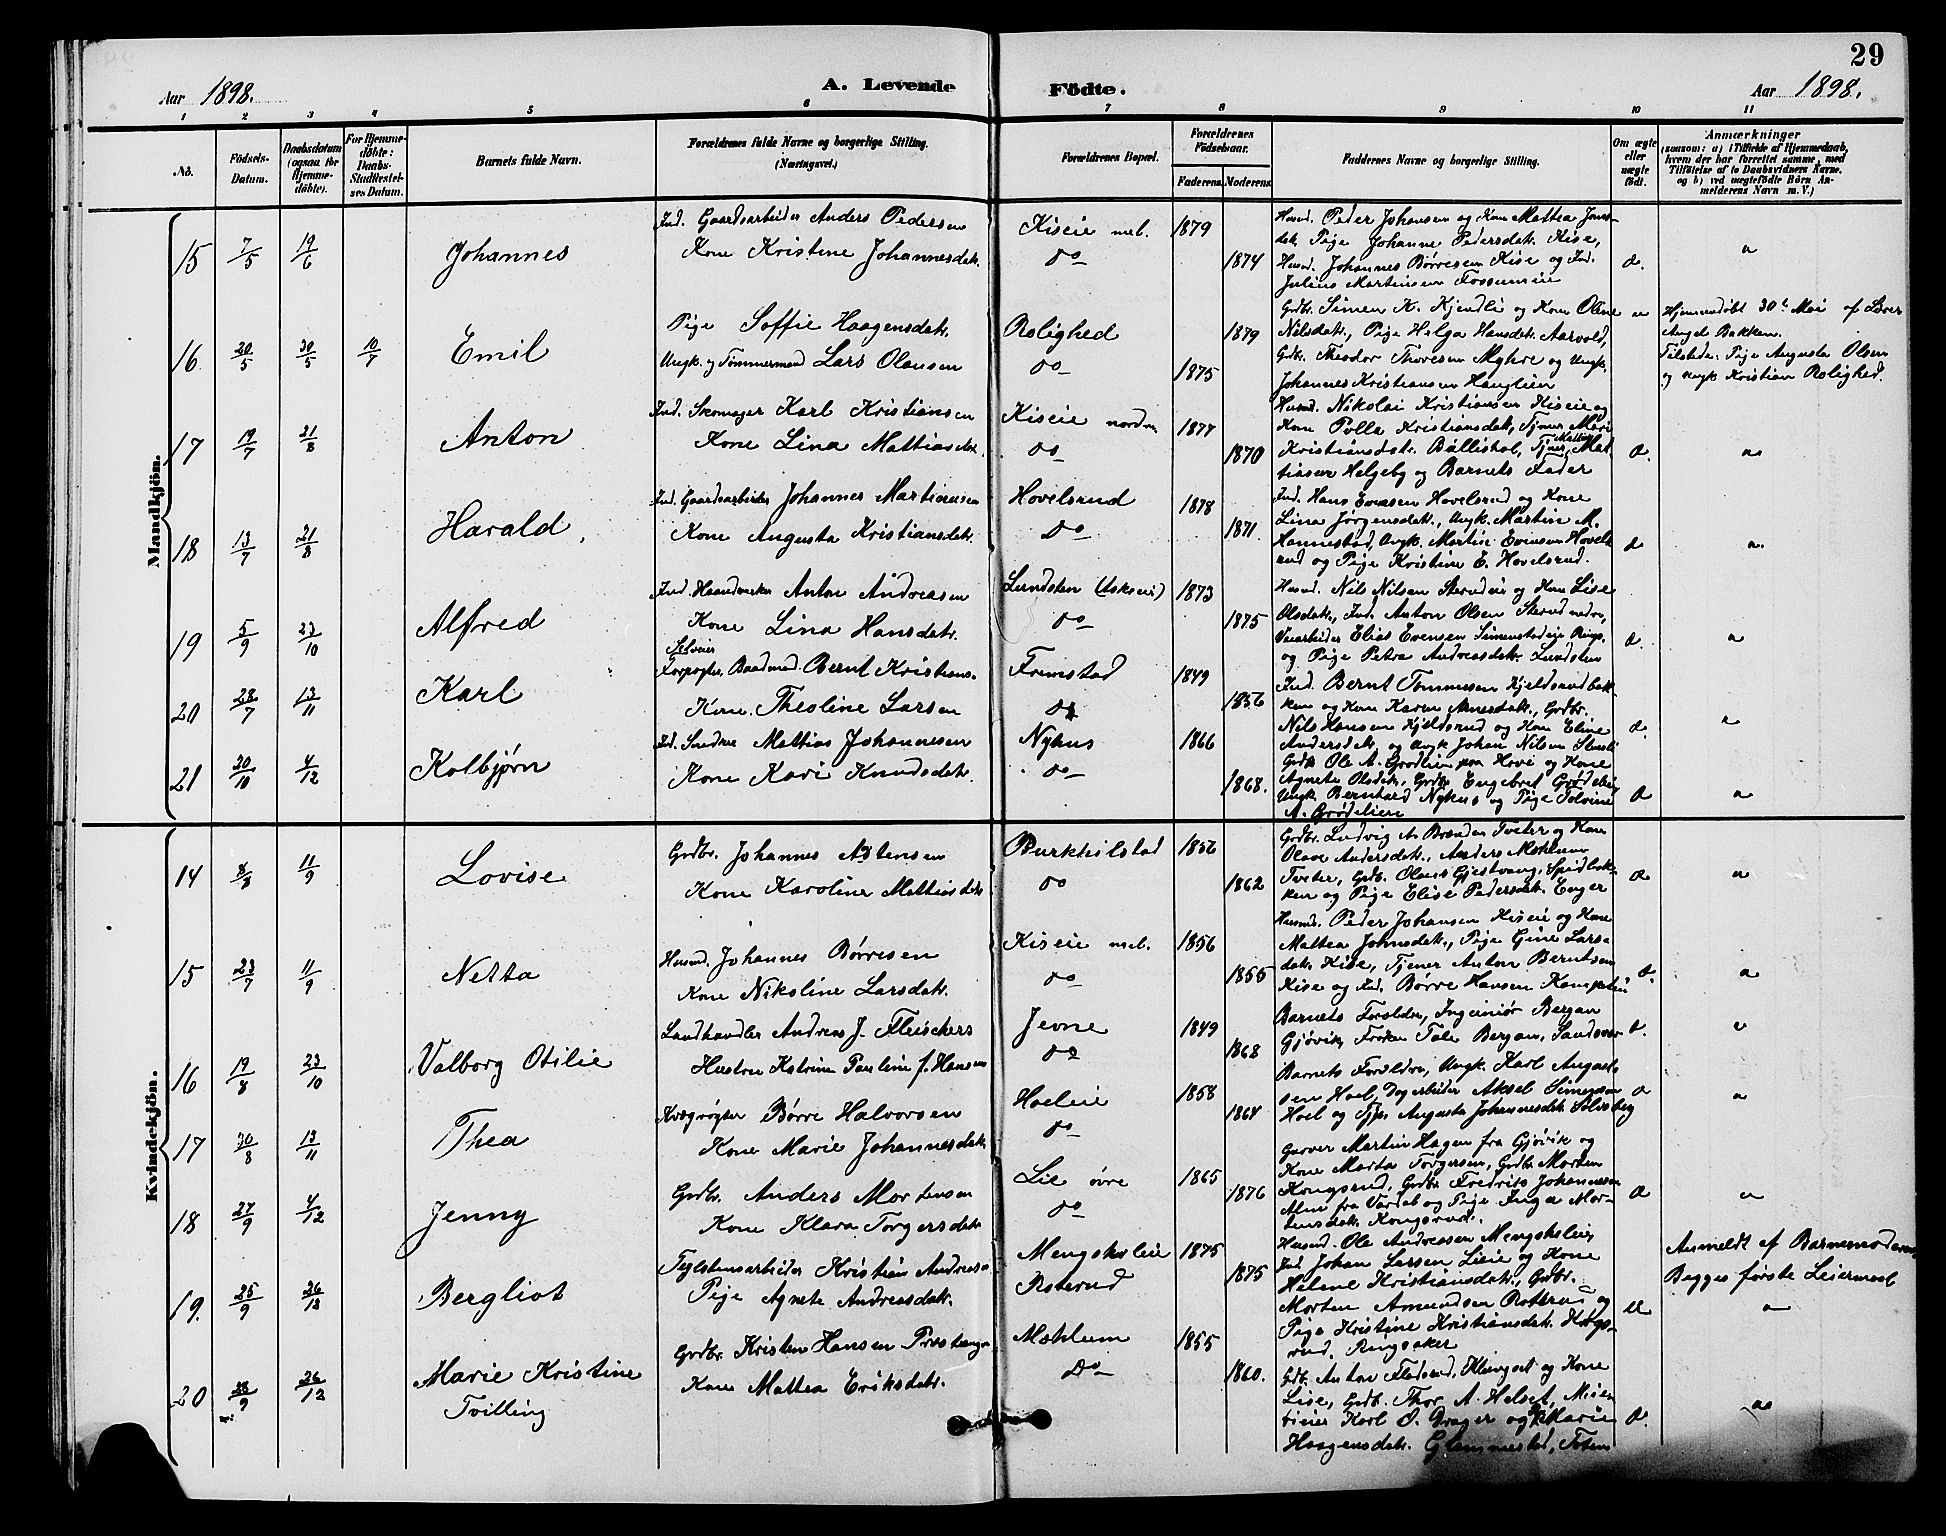 29
Aar 1898.
A. Levende Födte.
Aar 1898.
1 2 3 4 5 6 7 8 9 10 11
No.
Födsels-Datum.
Daabsdatum (ogsaa for Hjemmedöbte).
For Hjemmedöbte: Daabs-Stadfæstelses Datum.
Barnets fulde Navn.
Forældrenes fulde Navne og borgerlige Stilling. (Næringsvei.)
Forældrenes Bopæl.
Forældrenes Födselsaar.
Faderens. Moderens.
Faddernes Navne og borgerlige Stilling.
Om ægte eller uægte födt.
Anmærkninger
(saasom: a) i Tilfælde af Hjemmedaab, hvem der har forrettet samme, med Tilföielse af to Daabsvidners Navne, og b) ved uægtefödte Börn Anmelderens Navn m. V.)
Mandkjön.
15 7/5 19/6 Johannes
Ind. Gaardsarbeider Anders Pedersen
Kone Kristine Johannesdat.
Kiseie mel. 1879
do 1874
Husmd. Peder Johansen og Kone Mattea Jons-
dat. Pige Johanne Pedersdat. Kise,
Husmd. Johannes Børresen Kise og Ind.
Julius Martinsen Fossumeie
16 20/5 30/5 10/7 Emil
Pige Soffie Haagensdat.
Ungk. og Tømmermand Lars Olausen
Rolighed 1879
do 1875
Grdbr. Simen K. Kjendli og Kone Oline
Nilsdat., Pige Helga Hansdat. Aarvold,
Grdbr. Theodor Thoresen Myhre og Ungk.
Johannes Kristiansen Hauglien
Hjemmedøbt 30te Mai af Lærer
Angel Bakken.
Tilstede: Pige Augusta Olsen
og Ungk Kristian Rolighed.
17 19/7 21/8 Anton
Ind. Skomager Karl Kristiansen
Kone Lina Mattiasdat.
Kiseie nordre 1877
do 1870
Husmd. Nikolai Kristiansen Kiseie og
Kone Polla Kristiansdat, Tjener Mari
Kristiansdat. Ballishol, Tjener Mattias Mat-
tiasen Helgeby og Barnets Fader
18 13/7 21/8 Harald
Ind. Gaardsarbeider Johannes Martinusen
Kone Augusta Kristiansdat.
Hovelsrud 1878
do 1871
Ind. Hans Evensen Hovelsrud og Kone
Lina Jørgensdat., Ungk. Martin M.
Hannestad, Ungk. Martin Evensen Hovels-
rud og Pige Kristine E. Hovelsrud.
19 5/9 23/10 Alfred
Ind. Haandverker Anton Andreasen
Kone Lina Hansdat.
Lundsten (Askeie) 1873
do 1875
Husmd. Nils Nilsen Sterudeie og Kone Lise
Olsdat., Ind. Anton Olsen Sterud nedre,
Veiarbeider Elias Evensen Simenstadeie Rings.
og Pige Petra Andreasdat. Lundsten
20 28/7 13/11 Karl
Selveier
Forpagter, Baadmd. Bernt Kristians.
Kone Theoline Larsen
Fremstad 1849
do 1856
Ind. Bernt Tommesen Kjeldsrudbak-
ken og Kone Karen Arnesdat., Grdbr.
Nils Hansen Kjeldsrud og Kone Eline
Andersdat., og Ungk Johan Nilsen
21 20/10 4/12 Kolbjørn
Ind. Snedker Mattias Johannesen
Kone Kari Knudsdat.
Nyhus 1866
do 1868.
Grdbr Ole A. Grødlien paa Hovi og Kone
Agnete Olsdat., Grdbr. Engebret Grødlien,
Ungk. Bernhard Nyhus og Pige Tolvine
A. Grødlien
Kvindekjön.
14 8/8 11/9 Lovise
Grdbr. Johannes Astensen
Kone Karoline Mattiasdat.
Burkhilstad 1856
do 1862
Grdbr. Ludvig A. Brænden Tveter og Kone
Olave Andersdat., Anders Mæhlum
Tveter, Grdb. Olaus Gjestvang, Spidbak-
ken og Pige Elise Pedersdat. Enger
15 23/7 11/9 Netta
Husmd. Johannes Børresen
Kone Nikoline Larsdat.
Kiseie mel. 1856
do 1855
Husmd. Peder Johansen Kiseie og Kone
Mattea Johnsdat., Pige Gine Lars-
dat. Kise, Tjener Anton Berntsen
Kise og Ind. Børre Hansen
16 19/8 23/10 Valborg Otilie
Landhandler Andreas J. Fleischers
Hustru Katrine Pauline f. Hansen
Jevne 1849
do 1868
Barnets Forældre, Ingeniør Bergan
Gjøvik, Frøken Tale Bergan,
17 30/8 13/11 Thea
Kvægrøgter Børre Halvorsen
Kone Marie Johannesdat.
Hoeleie 1858
do 1864
Barnets Forældre, Ungk. Karl August-
sen Hoel, Dagarbeider Aksel Simensen
Hoel og Tjp. Augusta Johannesdat. Solvberg
18 27/9 4/12 Jenny
Grdbr. Anders Mortensen
Kone Klara Torgersdat.
Lie øvre 1865
do 1876
Garver Martin Hagen fra Gjøvik og
Kone Marta Torgersen, Grdbr. Morten
Kongsrud, Grdbr. Fredrik Johannesen
Alm fra Vardal og Pige Inga Mor-
tensdat. Kongsrud.
19. 25/9 26/12 Bergliot
Teglstensarbeider Kristian Andreasen
Pige Agnete Andreasdat.
Mengsholeie 1875
Roterud 1875
Husmd. Ole Andreasen Mengsholeie,
Ind Johan Larsen Lieie og Kone
Helene Kristiansdat., Grdbr.
Morten Amundsen Roterud og
Pige Kristine Kristiansdat.
Ringsaker
Anmeldt af Barnemoderen.
Begges første Leiermaal
20 28/9 26/12 Marie Kristine
Tvilling
Grdbr. Kristen Hansen Prestvægen
Kone Mattea Eriksdat.
Mæhlum 1855
Do 1860.
Grdb. Anton Flaterud, Klungset og Kone
Lise, Grdb. Thor A. Helset,
Karl O. Drager og Marie
Haagensdat. Glemmestad, Toten